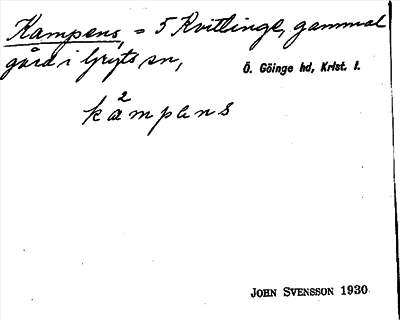 Kampens, = 5 Kvitlinge, gammal
gård i Gryts sn,
Ö. Göinge hd, Krist. l.
2
kampens
JOHN SVENSSON 1930